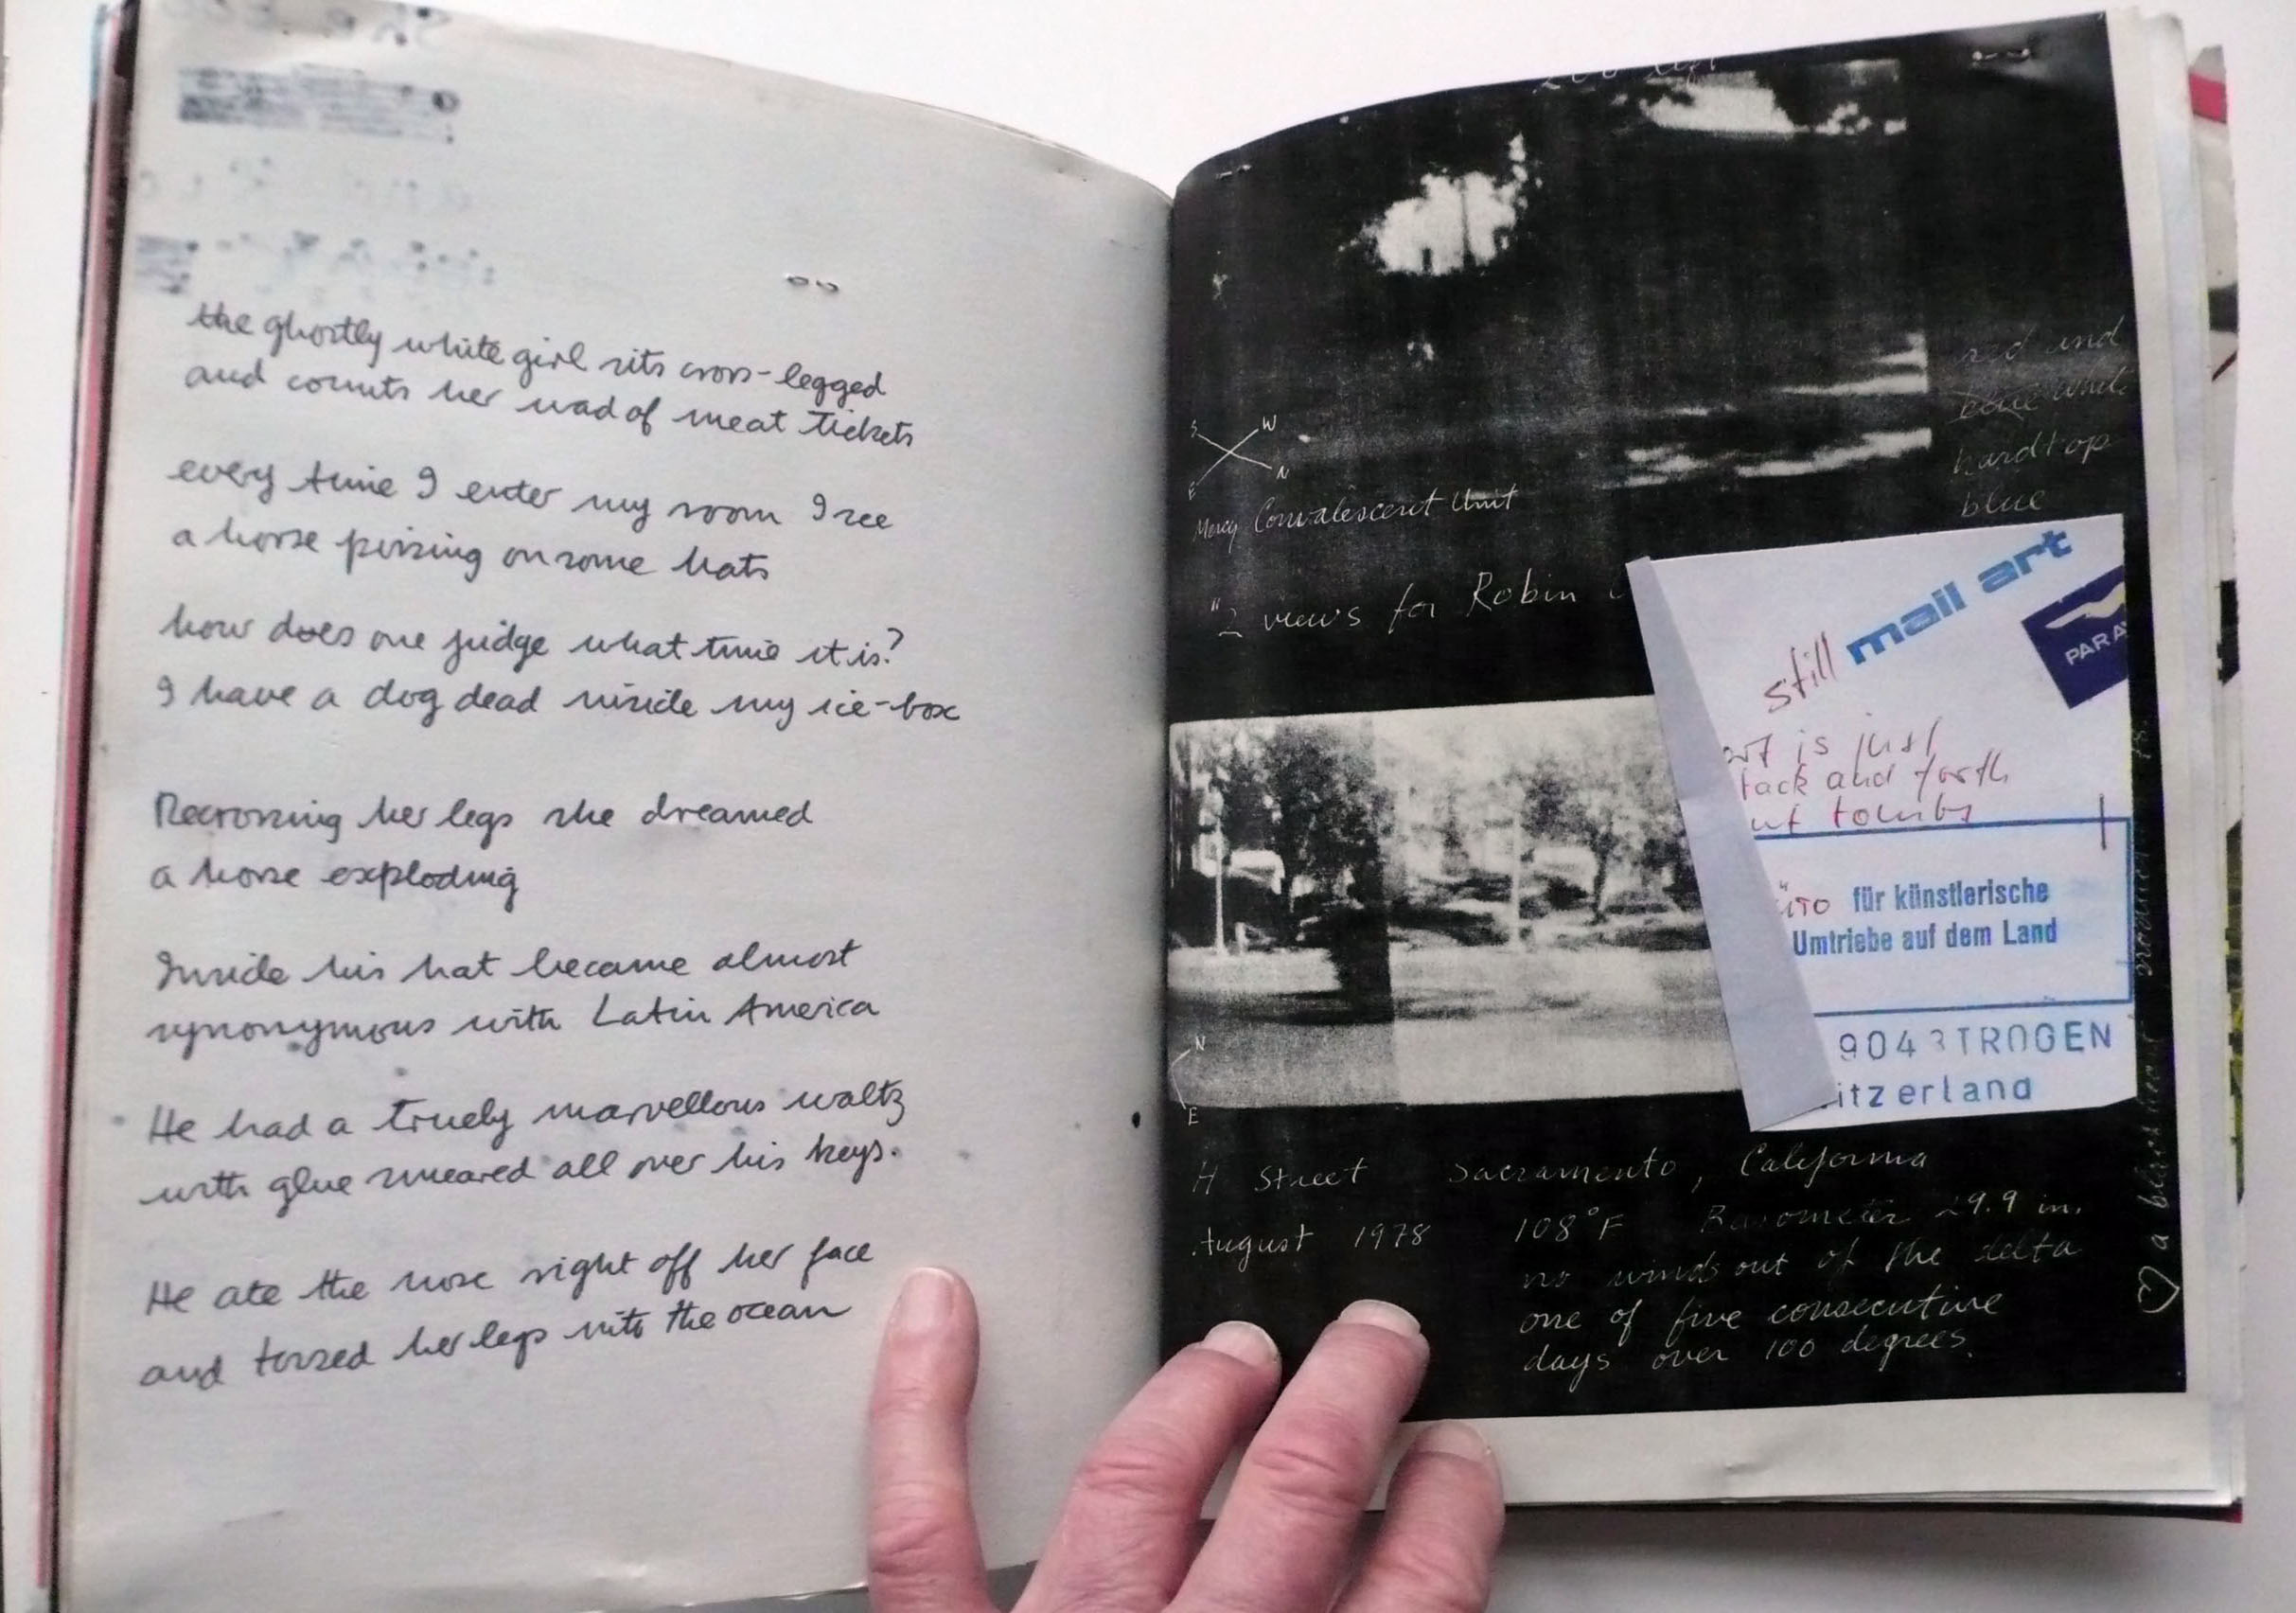 the ghostly white girl sits cross-legged
and counts her wad of meat tickets
every time I enter my room I see
a horse pissing on some hats
how does one judge what time it is?
I have a dog dead inside my ice-box
Recrossing her legs she dreamed
a horse exploding
Inside his hat became almost
synonymous with Latin America
He had a truely marvellous waltz
with glue smeared all over his keys.
He ate the nose right off her face
and tossed her legs into the ocean
red and
blue while
hardtop
blue
S W
E N
Mercy Convalescent Unit
"2 views for Robin
still mail art
PARA
is just
back and forth
tombs
für künstlerische
Umtriebe auf dem Land
9043 TROGEN
itzerland
N
E
H Street Sacramento, California
August 1978 108°F Barometer 29.9 in.
no winds out of the delta
one of five consecutive
days over 100 degrees.
a black